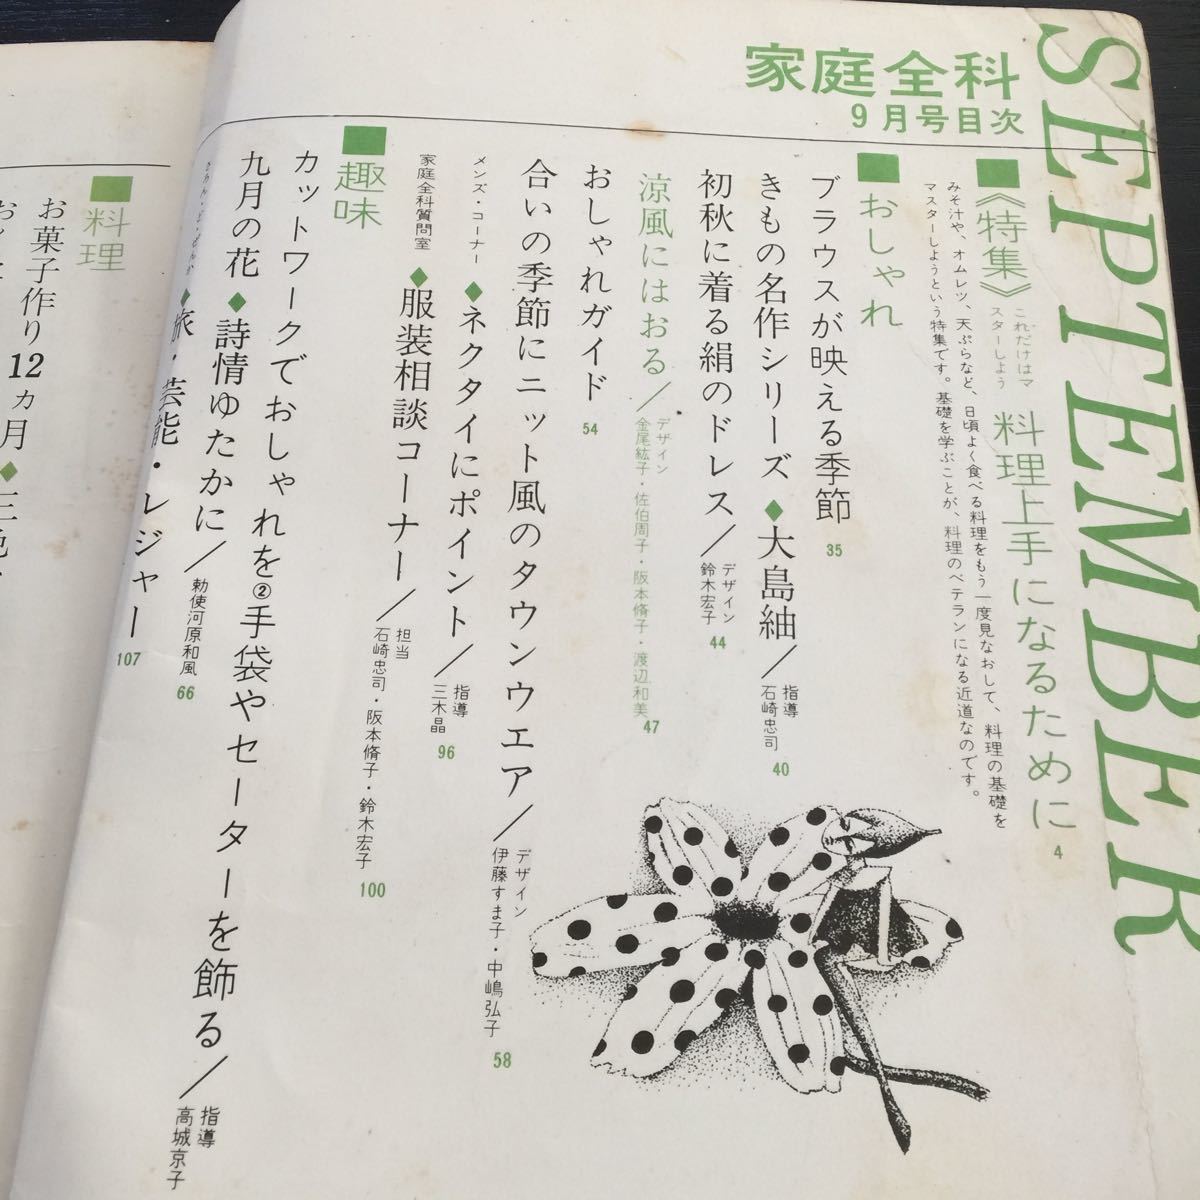 SEPTEMBER
家庭全科
9月号目次
■《特集》
これだけはマ
スターしよう
料理上手になるために
4
みそ汁や、オムレツ、天ぷらなど、日頃よく食べる料理をもう一度見なおして、料理の基礎を
マスターしようという特集です。基礎を学ぶことが、料理のベテランになる近道なのです。
■おしゃれ
ブラウスが映える季節
35
きもの名作シリーズ◆大島紬／指導 石崎忠司
40
初秋に着る絹のドレス／デザイン 鈴木宏子
44
涼風にはおる／デザイン 金尾紘子・佐伯周子・阪本脩子・渡辺和美
47
おしゃれガイド
54
合いの季節にニット風のタウンウエア／デザイン 伊藤すま子・中嶋弘子
58
メンズ・コーナー◆ネクタイにポイント／指導 三木晶
96
家庭全科質問室◆服装相談コーナー／担当 石崎忠司・阪本脩子・鈴木宏子
100
■趣味
カットワークでおしゃれを②手袋やセーターを飾る／指導 高城京子
九月の花◆詩情ゆたかに／勅使河原和風
66
◆旅・芸能・レジャー
107
■料理
お菓子作り12ヵ月◆三色・